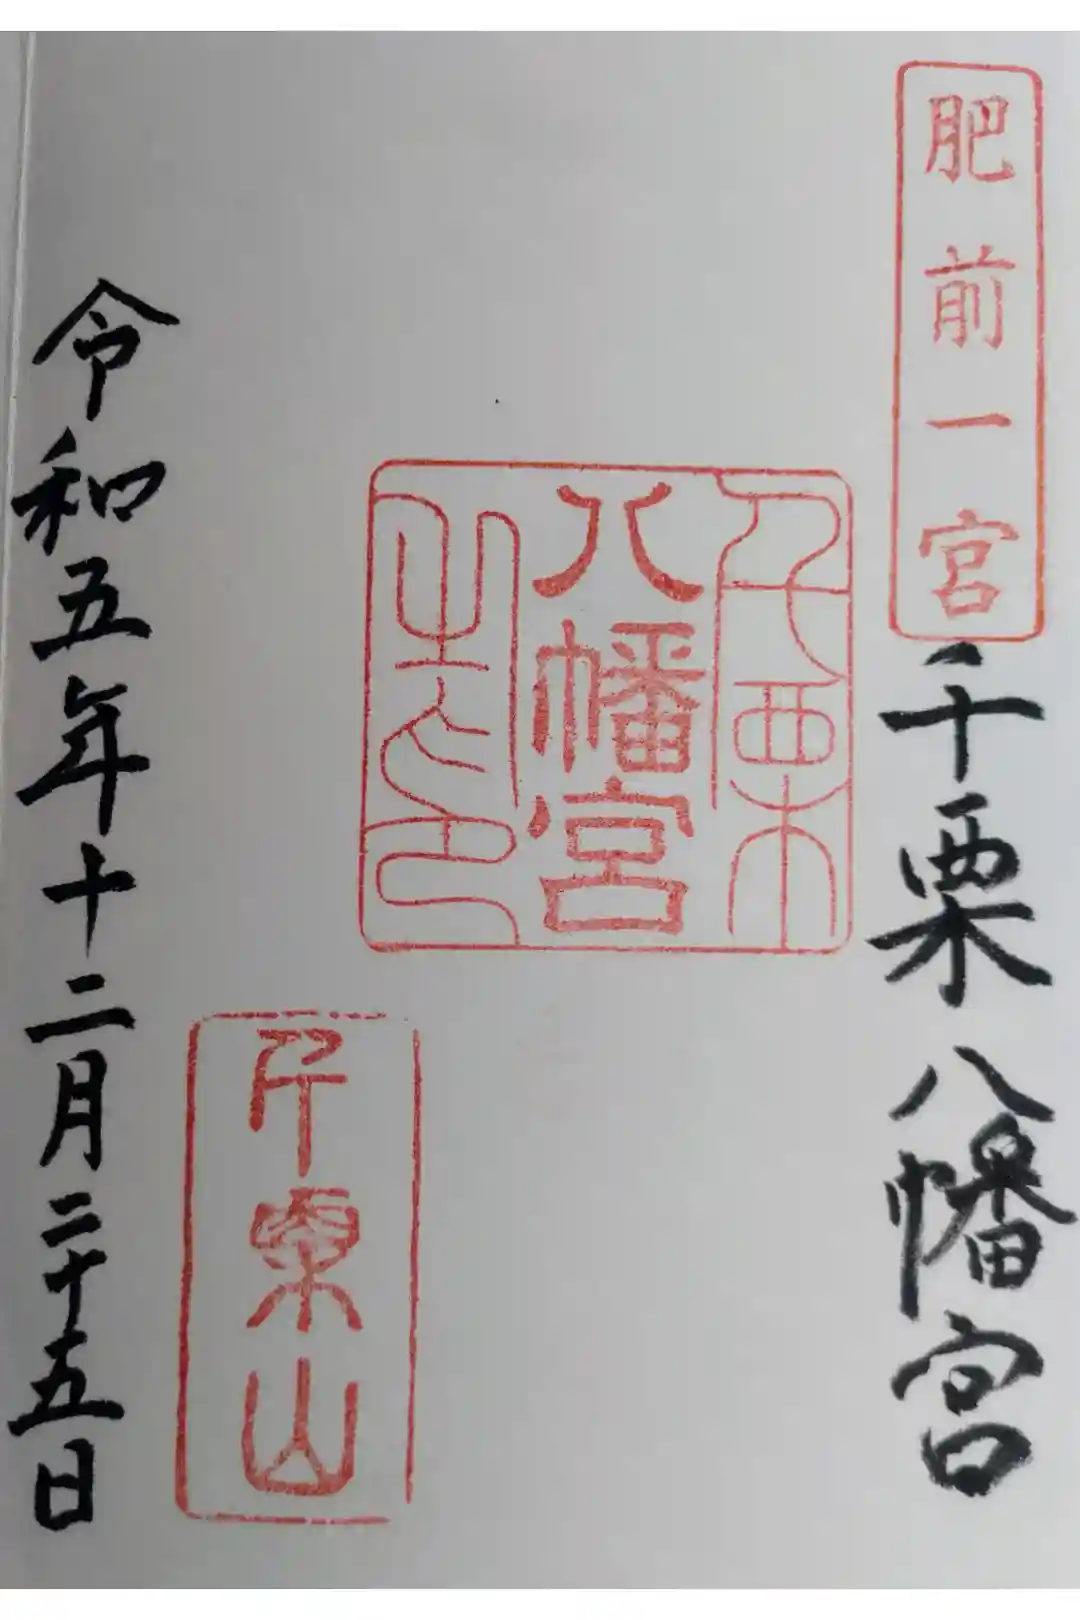 肥前一宮
千栗八幡宮
千栗
八幡宮
之印
千栗山
令和五年十二月二十五日